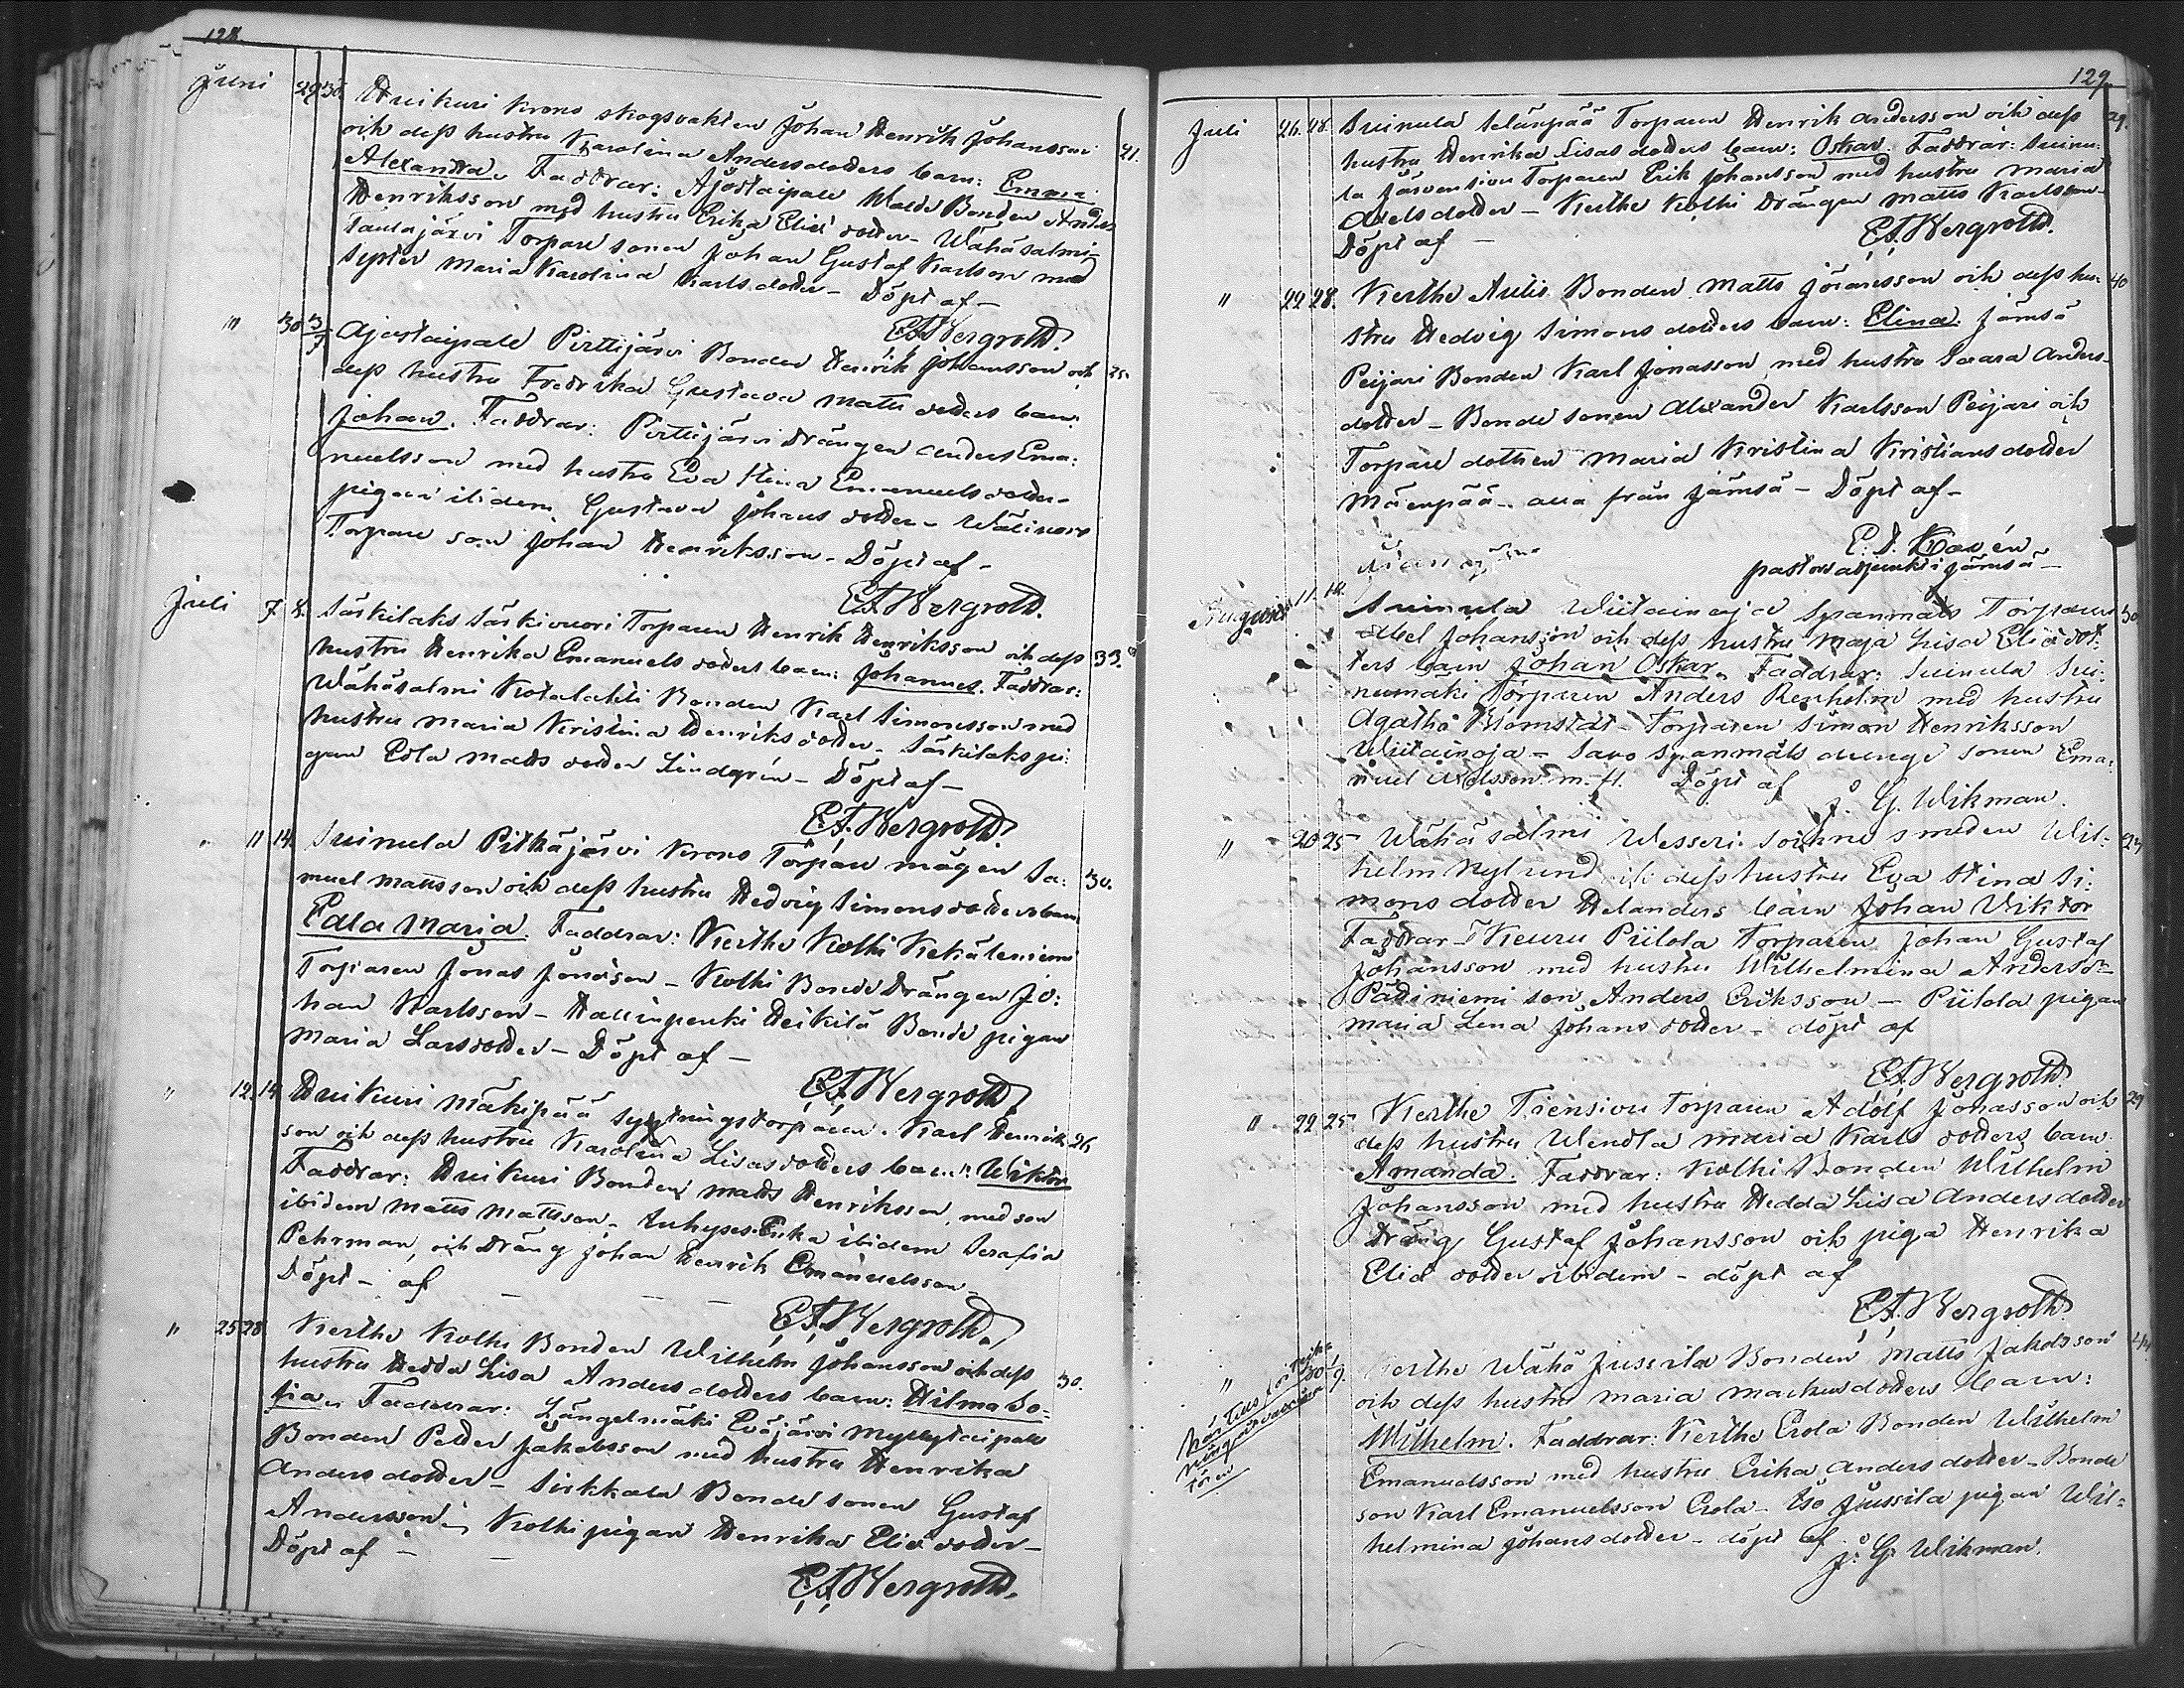 128.
Juni 29 30. Huikuri Krono skogsvakten Johan Henrik Johansson
och dess hustru Karolina Andersdotters barn: Emma 21.
Alexandra. Faddrar: Ajostaipale Bonden Anders
Henriksson med hustru Erika Eliæ dotter – Wähäsalmi
Taulajärvi Torpare sonen Johan Gustaf Karlson med
syster Maria Karolina Karlsdotter – Döpt af –
E. A. Bergroth.
" 30 3/7 Ajostaipale Pirttijärvi Bonden Henrik Johansson och 25.
dess hustru Fredrika Gustava Matts dotters barn
Johan. Faddrar: Pirttijärvi Drängen Anders Ema:
nuelsson med hustru Eva Stina Emanuelsdotter –
pigan ibidem Gustava Johans dotter –
Torpare son Johan Henriksson – Döpt af –
E. A. Bergroth.
Juli 7. 8. Särkilaks Särkivuori Torparen Henrik Henriksson och dess 33.
hustru Henrika Emanuels dotters barn: Johannes. Faddrar:
Wähäsalmi Kotalahti Bonden Karl Simonsson med
hustru Maria Kristina Henriks dotter – Särkilaks pi:
gan Edla Matts dotter Lindgren – Döpt af –
E. A. Bergroth.
" 11 14. Suinula Pitkäjärvi Krono Torpare mågen Sa: 30.
muel Mattsson och dess hustru Hedvig Simonsdotters barn
Edla Maria. Faddrar: Kerthe Kolhi
Torparen Jonas Jonasson – Kolhi Bonde Drängen Jo:
han Karlsson – Hallinpenki Heikilä Bonde pigan
Maria Larsdotter – Döpt af –
E. A. Bergroth.
" 12. 14. Huikuri Mäkipää sytningstorparen Karl Henriks 26.
son och dess hustru Karolina Lisasdotters barn: Wiktor
Faddrar: Huikuri Bonden Matts Henriksson, med son
ibidem Matts Mattsson – Inhyses Enka ibidem Serafia
Pehrman, och Dräng Johan Henrik Emanuelsson –
Döpt – af – – –
E. A. Bergroth.
" 25 28. Kerthe Kolhi Bonden Wilhelm Johansson och dess
hustru Hedda Lisa Anders dotters barn: Hilma So: 30.
fia. Faddrar: Längelmäki Eväjärvi Myllytaipale
Bonden Petter Jakobsson med hustru Henrika
Anders dotter – Sirkkala Bonde sonen Gustaf
Andersson – Kolhi pigan Henrika Eliæ dotter –
Döpt af –
E. A. Bergroth.
129.
Juli 26. 28. Suinula Selänpää Torparen Henrik Andersson och dess 29.
hustru Henrika Lisas dotters barn: Oskar. Faddrar: Suinu:
la Järvensivu Torparen Erik Johansson med hustru Maria
Axels dotter – Kerthe Kolhi Drängen Matts Karlsson –
Döpt af –
E. A. Bergroth.
" 22 28. Kerthe Bonden Matts Jöransson och dess hu: 40
stru Hedvig Simons dotters barn: Elina. Jämsä
Peijari Bonden Karl Jonasson med hustru Saara Anders
dotter – Bonde sonen Alexander Karlsson Peijari och
Torpare dottren Maria Kristina Kristians dotter
Mäenpää – alla från Jämsä – Döpt af –
pastors adjunkt i Jämsä –
Augusti 11. 14. Suinula Wiitainoja Spanmåls Torparen 30
Abel Johansson och dess hustru Maja Lisa Eliæ dot:
ters barn Johan Oskar. Faddrar: Suinula Sui:
numäki Torparen Anders Renholm med hustru
Agatha Blomstät – Torparen Simon Henriksson
Wiitainoja – Savo Spanmåls sonen Ema:
nuel Abelsson m. fl. Döpt af
J. G. Wikman.
" 20 25 Wähäsalmi Wesseri Sockne smeden Wil:
helm Nylund och dess hustru Eva Stina Si:
mons dotter Helanders barn Johan Viktor
Faddrar – Keuru Piilola Torparen Johan Gustaf
Johansson med hustru Wilhelmina Andersdr –
Pädiniemi son Anders Eriksson – Piilola pigan
Maria Lena Johans dotter – döpt af
E. A. Bergroth.
" 22 25 Kerthe Tiensivu Torparen Adolf Jonasson och 29
dess hustru Wendla Maria Karls dotters barn
Amanda. Faddrar: Kolhi Bonden Wilhelm
Johansson med hustru Hedda Lisa Anders dotter
Dräng Gustaf Johansson och piga Henrika
Eliæ dotter ibidem – döpt af
E. A. Bergroth.
" 30 1/9. Kerthe Wähä Jussila Bonden Matts Jakobsson
och dess hustru Maria Markusdotters barn:
Wilhelm. Faddrar: Kerthe Erola Bonden Wilhelm
Emanuelsson med hustru Erika Anders dotter – Bonde
son Karl Emanuelsson Erola – Iso Jussila pigan Wil:
helmina Johans dotter – döpt af
J. G. Wikman.